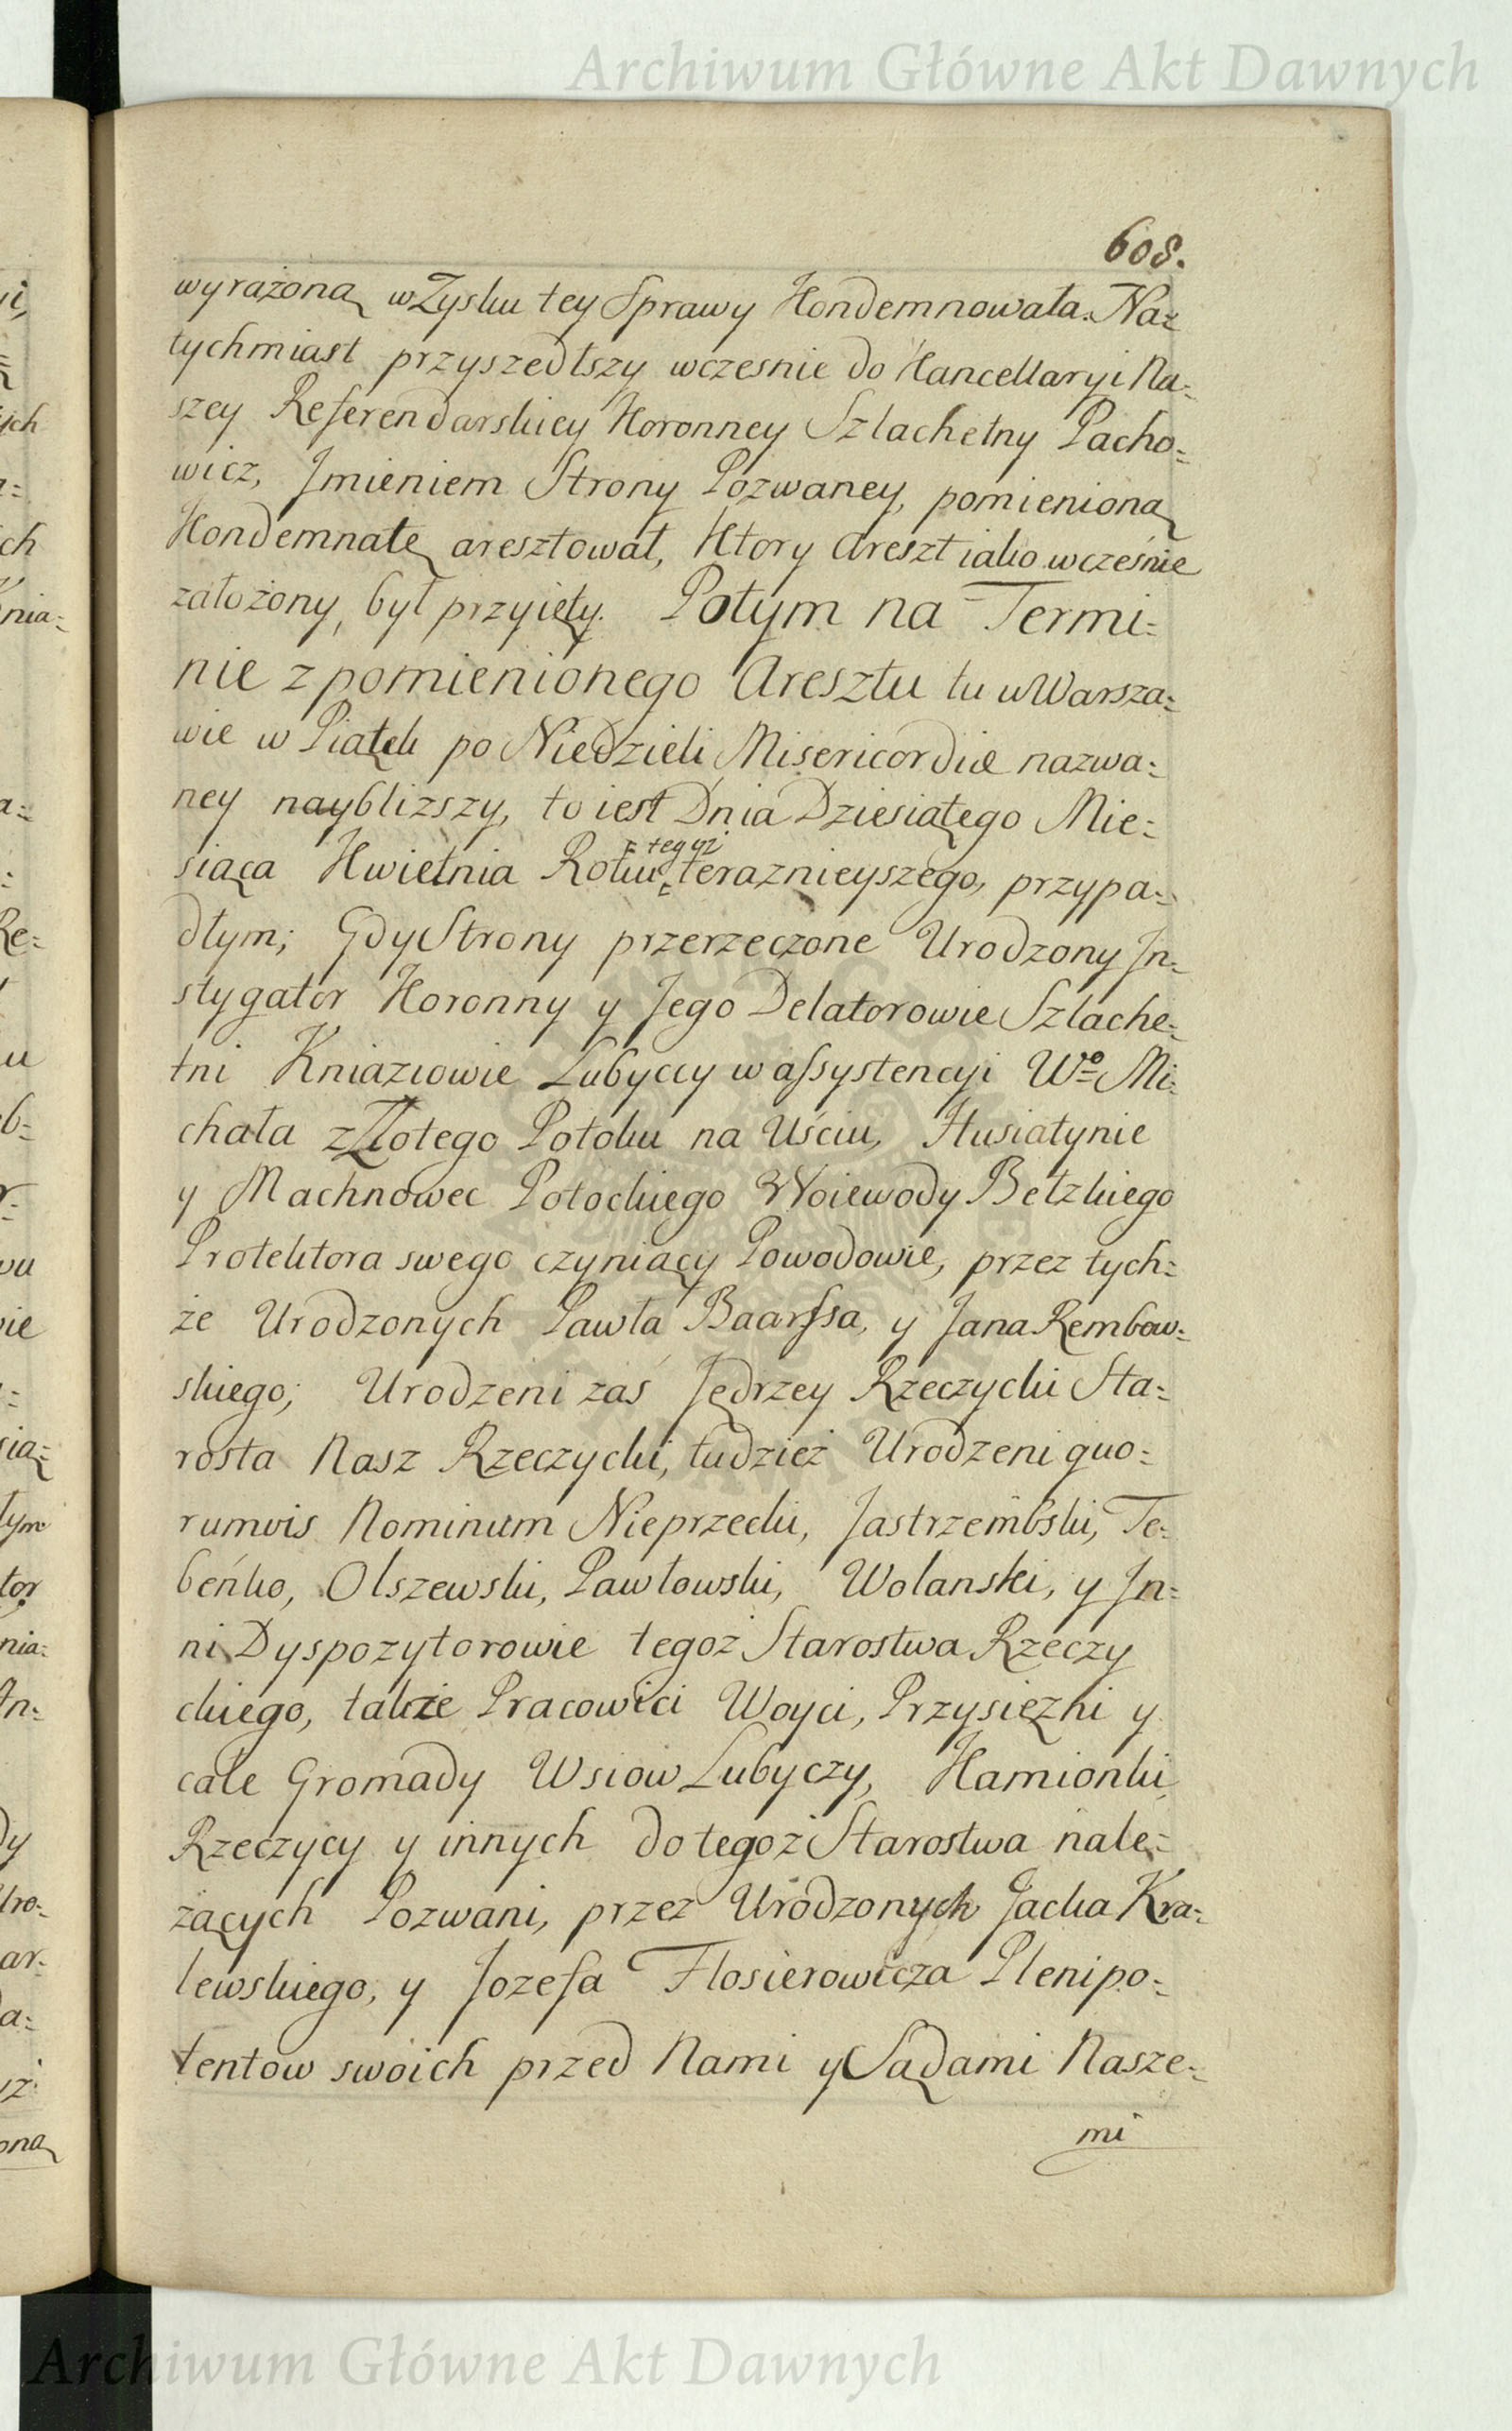 Archiwum Główne Akt Dawnych
608.
wyrażoną w Zysku tey Sprawy Kondemnowała. Na=
tychmiast przyszedłszy wczesnie do Kancellaryi Na=
szey Referendarskiey Koronney Szlachetny Pacho=
wicz, Jmieniem Strony Pozwaney, pomienioną
Kondemnatę aresztował, Ktory Areszt iako wcześnie
założony, był przyięty. Potym na Termi=
nie z pomienionego Aresztu tu w Warsza=
wie w Piątek po Niedzieli Misericordiæ nazwa=
ney naybliższy, to iest Dnia Dziesiątego Mie=
tegoż
siąca Kwietnia Roku teraznieyszego, przypa=
dłym; Gdy Strony przerzeczone Urodzony Jn=
stygator Koronny y Jego Delatorowie Szlache=
tni Kniaziowie Lubyccy w assystencyi Wo Mi=
chała z Złotego Potoku na Uściu, Husiatynie
y Machnowec Potockiego Woiewody Bełzkiego
Protektora swego czyniący Powodowie, przez tych=
że Urodzonych Pawła Baarssa, y Jana Rembow=
skiego; Urodzeni zaś Jędrzey Rzeczycki Sta=
rosta Nasz Rzeczycki, tudzież Urodzeni quo=
rumvis Nominum Nieprzecki, Jastrzembski, Te=
beńko, Olszewski, Pawłowski, Wolanski, y Jn=
ni Dyspozytorowie tegoż Starostwa Rzeczy
ckiego, także Pracowici Woyci, Przysiężni y
całe Gromady Wsiow Lubyczy, Kamionki,
Rzeczycy y innych do tegoż Starostwa nale=
żących Pozwani, przez Urodzonych Jacka Kra=
lewskiego, y Jozefa Flosierowicza Plenipo=
tentow swoich przed Nami y Sądami Nasze=
mi
Archiwum Główne Akt Dawnych